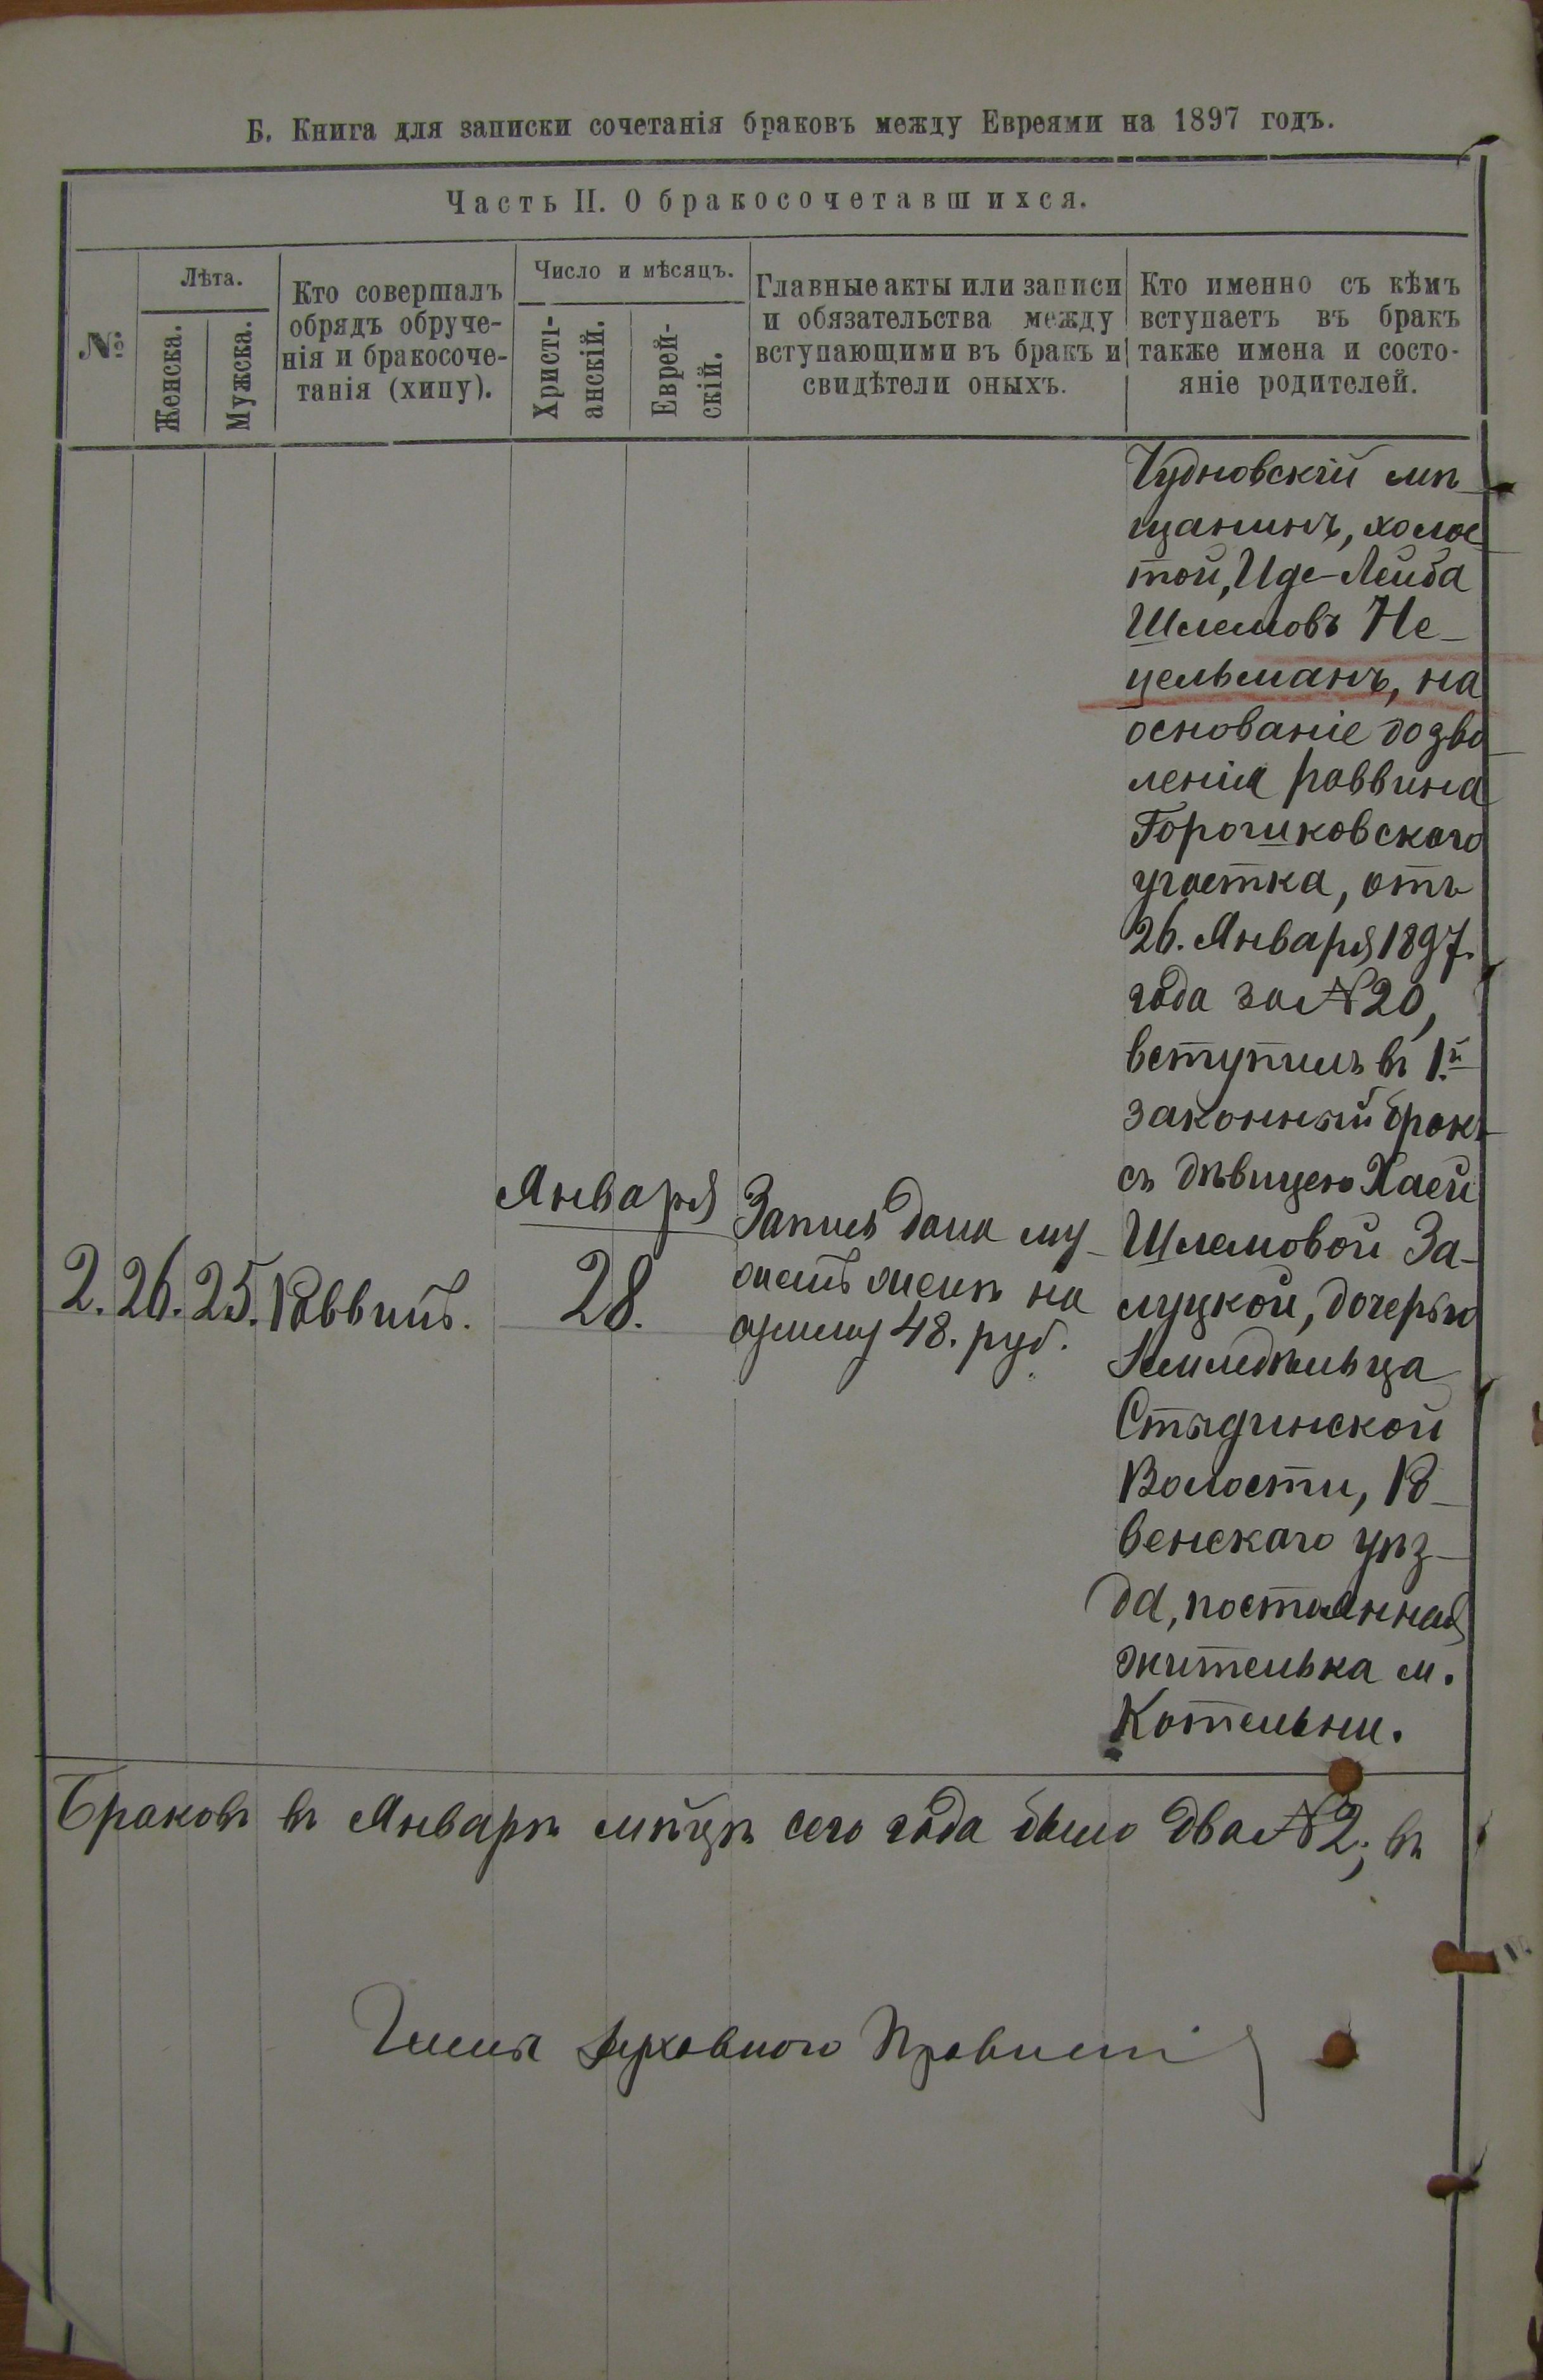 Б. Книга для записки сочетанія браковъ между Евреями на 1897 годъ.
Часть II. О бракосочетавшихся.
№
Лѣта.
Женска.
Мужска.
Кто совершалъ
обрядъ обруче-
нія и бракосоче-
танія (хипу).
Число и мѣсяцъ.
Христі-
анскій.
Еврей-
скій.
Главные акты или записи
и обязательства между
вступающими въ бракъ и
свидѣтели оныхъ.
Кто именно съ кѣмъ
вступаетъ въ бракъ
также имена и состо-
яніе родителей.
2. 26. 25. Раввинъ.
Января
28.
Запись дана му-
жемъ женѣ на
сумму 48. руб.
Чудновскій мѣ-
щанинъ, холос-
той, Иде-Лейба
Шлемовъ Не-
цельманъ, на
основаніе дозво-
ленія раввина
Горошковскаго
участка, отъ
26. Января 1897.
года за № 20,
вступилъ въ 1.й
законный бракъ
съ дѣвицею Хаей
Шлемовой За-
луцкой, дочерью
Земледѣльца
Стыдинской
Волости, Ро-
венскаго уѣз-
да, постоянная
жителька м.
Котельни.
Браковъ въ Январѣ мѣсцѣ сего года было два № 2; въ
Члены Духовного Правленія